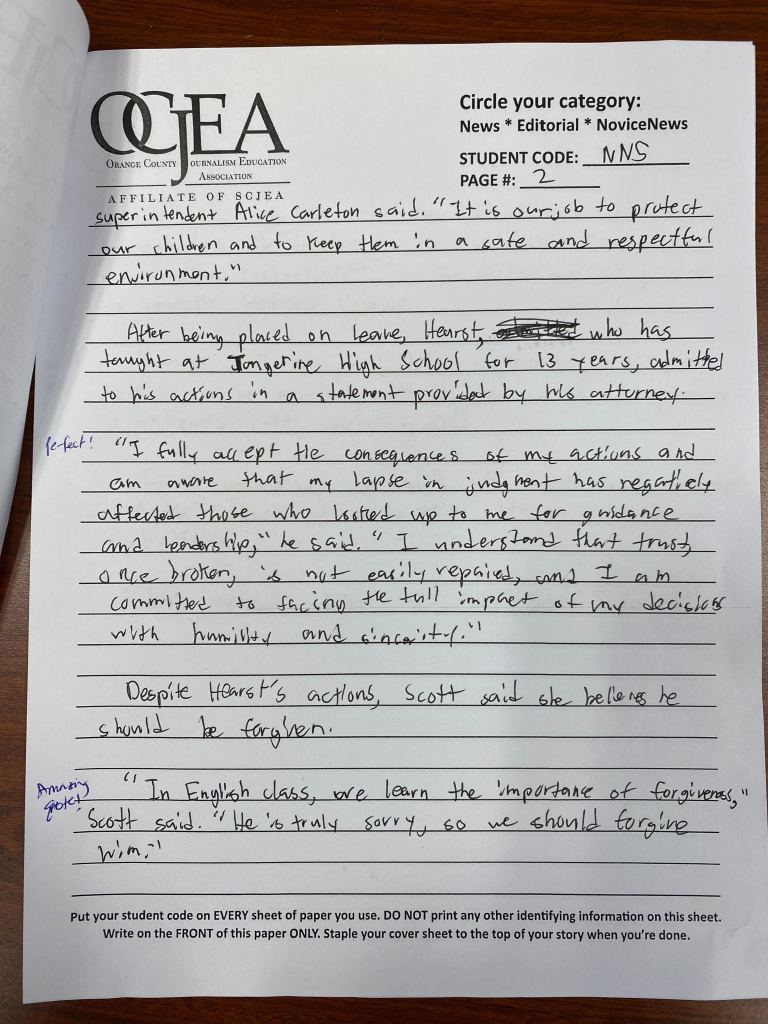 OCJEA
ORANGE COUNTY JOURNALISM EDUCATION
ASSOCIATION
AFFILIATE OF SCJEA
Circle your category:
News * Editorial * NoviceNews
STUDENT CODE: NNS
PAGE #: 2
superintendent Alice Carleton said. "It is our job to protect
our children and to keep them in a safe and respectful
environment."
After being placed on leave, Hearst, who has
taught at Tangerine High School for 13 years, admitted
to his actions in a statement provided by his attorney.
Perfect!
"I fully accept the consequences of my actions and
am aware that my lapse in judgment has negatively
affected those who looked up to me for guidance
and leadership," he said. "I understand that trust,
once broken, is not easily repaired, and I am
committed to facing the full impact of my decisions
with humility and sincerity."
Despite Hearst's actions, Scott said she believes he
should be forgiven.
Amazing
quote!
"In English class, we learn the importance of forgiveness,"
Scott said. "He is truly sorry, so we should forgive
him."
Put your student code on EVERY sheet of paper you use. DO NOT print any other identifying information on this sheet.
Write on the FRONT of this paper ONLY. Staple your cover sheet to the top of your story when you're done.